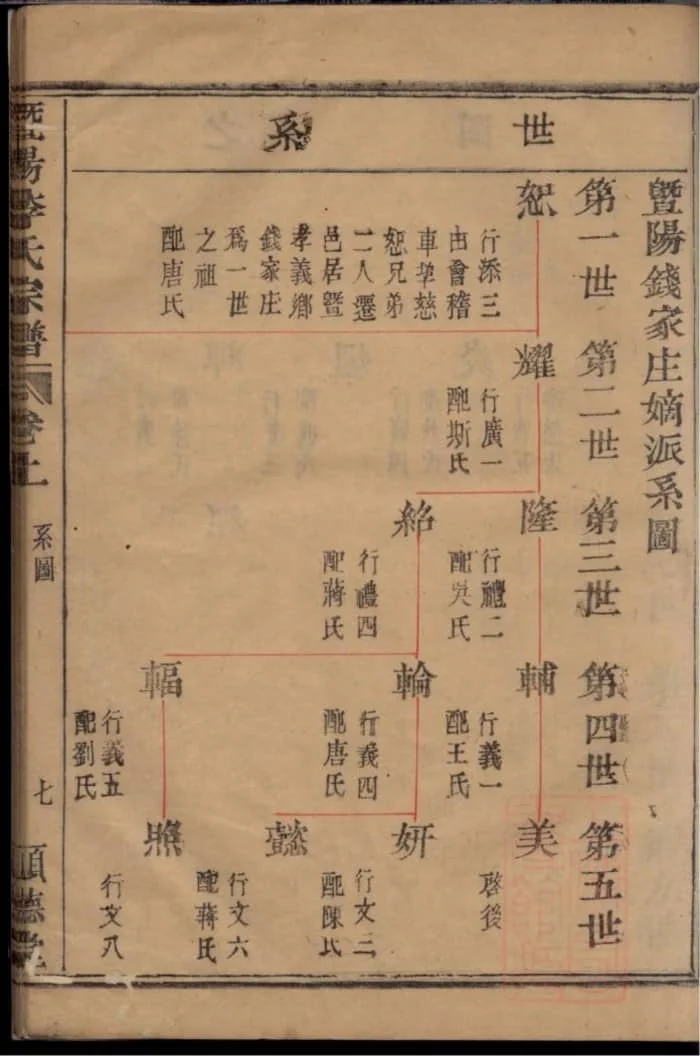 世系
暨陽錢家庄嫡派系圖
第一世
第二世
第三世
第四世
第五世
恕
行添三
由會稽
車埄慈
恕兄弟
二人遷
邑居暨
孝義鄉
錢家庄
爲一世
之祖
配唐氏
耀
行廣一
配斯氏
隆
行禮二
配吳氏
紹
行禮四
配蔣氏
輔
行義一
配王氏
輪
行義四
配唐氏
輻
行義五
配劉氏
美
啓後
妍
行文三
配陳氏
懿
行文六
配蔣氏
照
行文八
暨陽李氏宗譜
卷上
系圖
七
順德堂